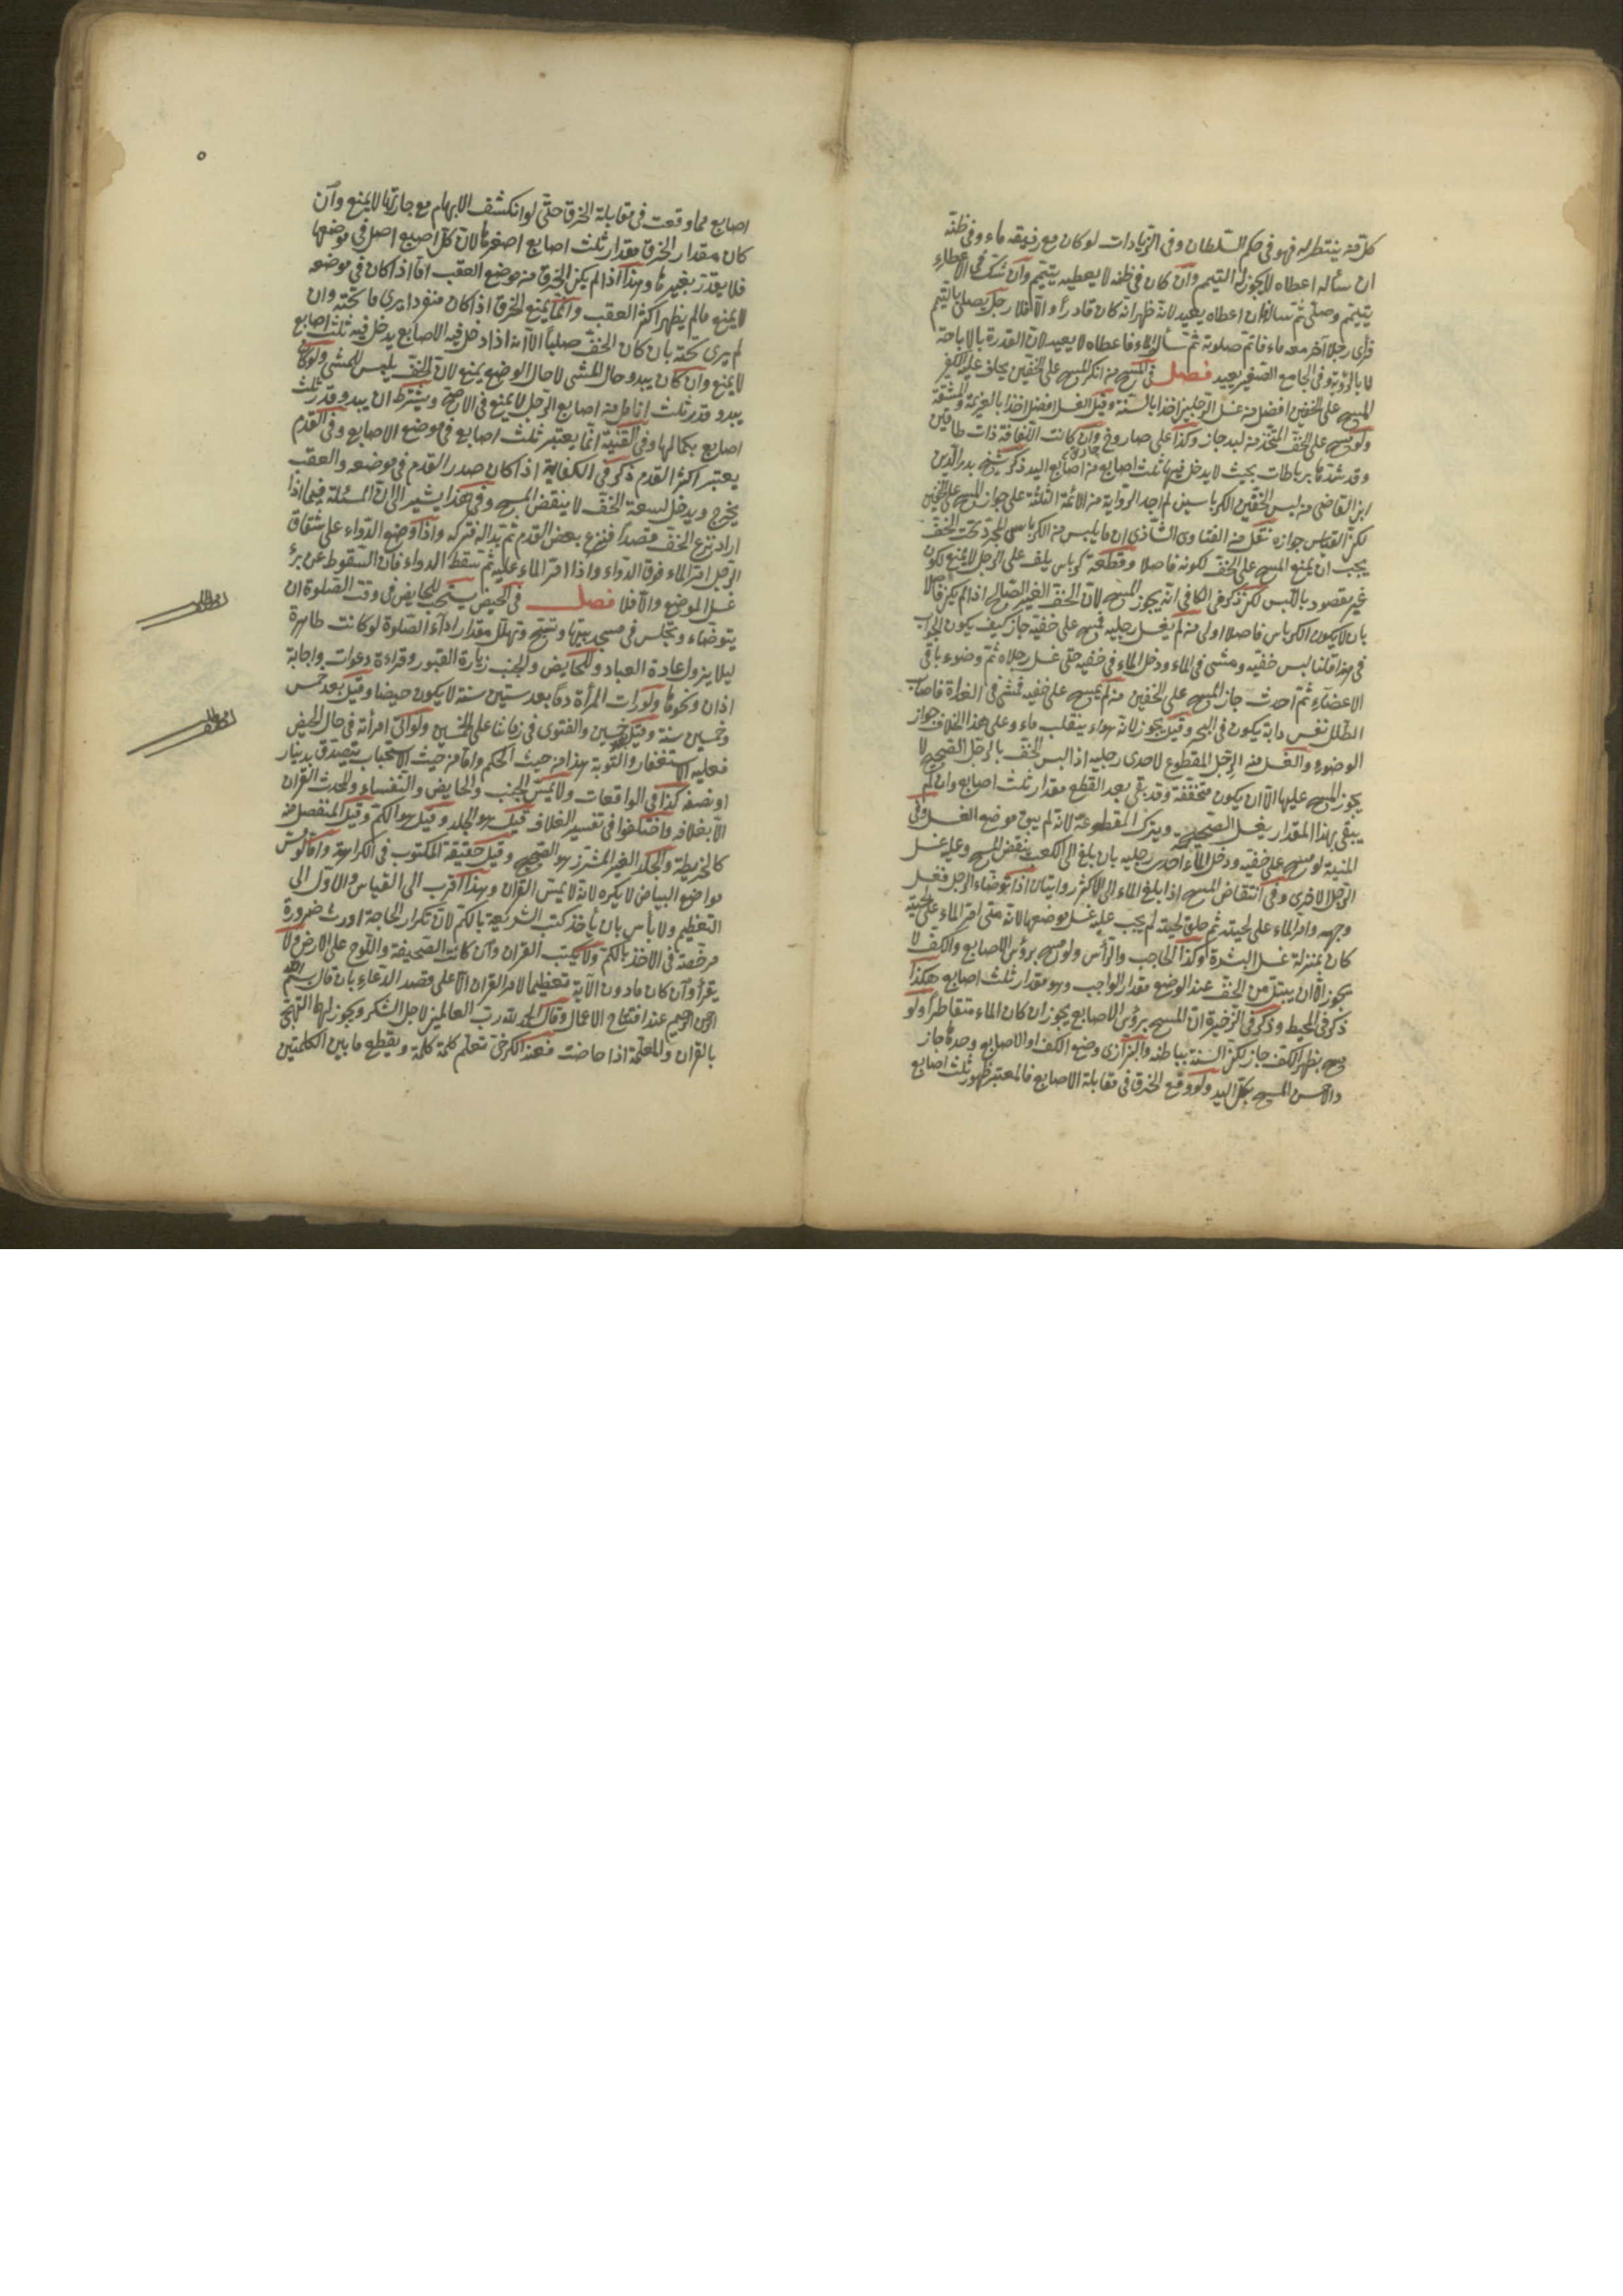 كل من ينتظر له فهو في حكم السلطان وفي الزيادات لو كان مع رفيقه ماء وفي ظنه
ان سأله اعطاه لا يجوز له التيمم وان كان في ظنه لا يعطيه يتيمم وان شك في الاعطاء
يتيمم وصلى ثم سأله ان اعطاه يعيد لانه ظهر انه كان قادرا والا فلا رجل يصلي بالتيمم
فرأى رجلا آخر معه ماء فاتم صلوته ثم سأل الماء فاعطاه لا يعيد لان القدرة بالاباحة
لا بالرؤية وفي الجامع الصغير يعيد فصل في المسح من انكر المسح على الخفين يخاف عليه الكفر
المسح على الخفين افضل من غسل الرجلين اخذا بالسنة وقيل الغسل افضل اخذا بالعزيمة والمشقة
ولو مسح على الخف المتخذ من لبد جاز وكذا على صاروخ وان كانت اللفافة ذات طاقين
وقد شدها برباطات بحيث لا يدخل فيها ثلث اصابع من اصابع اليد ذكر شيخ بدر الدين
ابن القاضي من لبس الخفين الكرباسين لم اجد الرواية من الائمة الثلثة على جواز المسح على الخفين
لكن القياس جوازه نقل من الفتاوى الشاذي ان ما يلبس من الكرباس المجرد تحت الخف
يجب ان يمنع المسح على الخف لكونه فاصلا وقطعة كرباس يلف على الرجل لا يمنع لكونه
غير مقصود باللبس لكن ذكر في الكافي انه يجوز المسح لان الخف الغير الصالح اذا لم يكن فاصلا
بان لا يكون الكرباس فاصلا اولى من لم يغسل رجليه فمسح على خفيه جاز كيف يكون الجواب
في هذا قلنا لبس خفيه ومشى في الماء ودخل الماء في خفيه حتى غسل رجلاه ثم وضوء باقي
الاعضاء ثم احدث جاز المسح على الخفين من لم يمسح على خفيه فمشى في الغداة فاصاب
الطلل نفس دابة يكون في البحر وقيل يجوز لانه هواء ينقلب ماء وعلى هذا الخلاف جواز
الوضوء والغسل منه الرجل المقطوع لاحدى رجليه اذا لبس الخف بالرجل الصحيح لا
يجوز المسح عليها الا ان يكون متخففة وقد بقي بعد القطع مقدار ثلث اصابع وان لم
يبقى بهذا المقدار يغسل الصحيحة ويترك المقطوعة لانه لم يبق موضع الغسل وفي
المنية لو مسح على خفيه ودخل الماء احدى رجليه بان بلغ الى الكعب ينقض المسح وعليه غسل
الرجل الاخرى وفي انتقاض المسح اذا بلغ الماء الى الاكثر روايتان اذا توضاء الرجل فغسل
وجهه وامر الماء على لحيته ثم حلق لحيته لم يجب عليه غسل موضعها لانه متى امر الماء على لحيته
كان بمنزلة غسل البشرة وكذا الحاجب والرأس ولو مسح برؤس الاصابع والكف لا
يجوز الا ان يبتل من الخف عند الوضع مقدار الواجب وهو مقدار ثلث اصابع هكذا
ذكر في المحيط وذكر في الذخيرة ان المسح برؤس الاصابع يجوز ان كان الماء متقاطرا ولو
مسح بظهر الكف جاز لكن السنة بباطنه والبزازي وضع الكف او الاصابع وحدها جاز
والاحسن المسح بكل اليد ولو وقع الخرق في مقابلة الاصابع فالمعتبر ظهور ثلث اصابع
٥
اصابع مما وقعت في مقابلة الخرق حتى لو انكشف الابهام مع جارتها لا يمنع وان
كان مقدار الخرق مقدار ثلث اصابع اصغرها لان كل اصبع اصل في موضعها
فلا يقدر بغيرها وهذا اذا لم يكن الخرق من موضع العقب اما اذا كان في موضعه
لا يمنع ما لم يظهر اكثر العقب وانما يمنع الخرق اذا كان منفردا يرى ما تحته وان
لم يرى تحته بان كان الخف صلبا الا انه اذا ادخل فيه الاصابع يدخل فيه ثلث اصابع
لا يمنع وان كان يبدو حال المشي لا حال الوضع يمنع لان الخف يلبس للمشي ولو كان
يبدو قدر ثلث انامل من اصابع الرجل لا يمنع في الاصح ويشترط ان يبدو قدر ثلث
اصابع بكمالها وفي القنية انما يعتبر ثلث اصابع في موضع الاصابع وفي القدم
يعتبر اكثر القدم ذكر في الكفاية اذا كان صدر القدم في موضعه والعقب
يخرج ويدخل لسعة الخف لا ينقض المسح وفي هذا يشير الى ان المسئلة فيما اذا
اراد نزع الخف قصدا فنزع بعض القدم ثم بدا له فتركه واذا وضع الدواء على شقاق
الرجل امر الماء فوق الدواء واذا امر الماء عليه ثم سقط الدواء فان السقوط عن برء
غسل الموضع والا فلا فصل في الحيض يستحب للحايض في وقت الصلوة ان
يتوضاء وتجلس في مسجد بيتها وتسبح وتهلل مقدار اداء الصلوة لو كانت طاهرة
ليلا يزول عادة العباد وللحايض والجنب زيارة القبور وقراءة دعوات واجابة
اذان ونحوها ولو رات المرأة دما بعد ستين سنة لا يكون حيضا وقيل بعد خمس
وخمسين سنة وقيل خمسين والفتوى في زماننا على الخمسين ولو اتى امرأته في حال الحيض
فعليه الاستغفار والتوبة هذا من حيث الحكم واما من حيث الاستحباب يتصدق بدينار
او نصفه كذا في الواقعات ولا يمس الجنب والحايض والنفساء والمحدث القران
الا بغلافه واختلفوا في تفسير الغلاف قيل هو الجلد وقيل هو الكم وقيل المنفصل منه
كالخريطة والجلد الغير المشرز هو الصحيح وقيل حقيقة المكتوب في الكراهة واما لو مس
مواضع البياض لا يكره لانه لا يمس القران وهذا اقرب الى القياس والاول الى
التعظيم ولا بأس بان يأخذ كتب الشريعة بالكم لان تكرار الحاجة اورث ضرورة
مرخصة في الاخذ بالكم ولا يكتب القران وان كانت الصحيفة واللوح على الارض ولا
يقرأ وان كان ما دون الآية تعظيما لامر القران الا على قصد الدعاء بان قال بسم الله
الرحمن الرحيم عند افتتاح الاعمال وقال الحمد لله رب العالمين لاجل الشكر ويجوز لها التهجي
بالقران والمعلمة اذا حاضت فعند الكرخي تعلم كلمة كلمة ويقطع ما بين الكلمتين
مطلب
مطلب